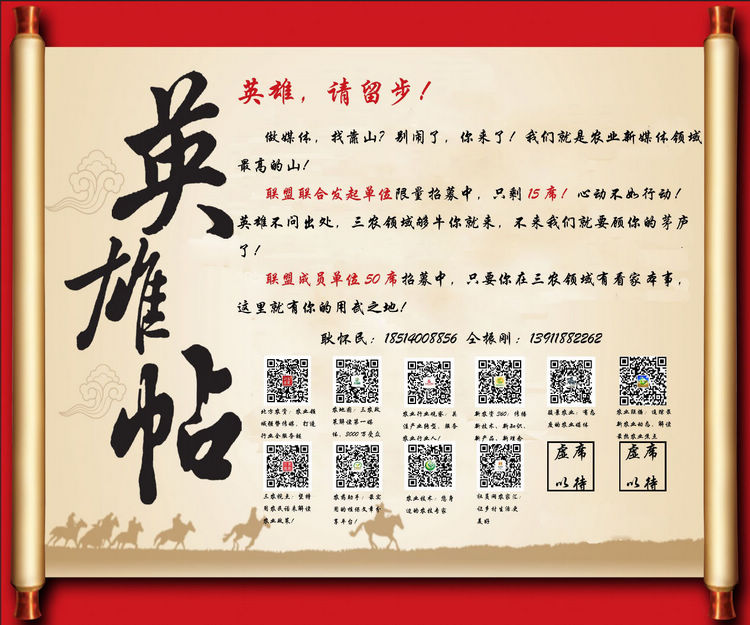 英雄帖
英雄，请留步！
做媒体，找靠山？别闹了，你来了！我们就是农业新媒体领域
最高的山！
联盟联合发起单位限量招募中，只剩15席！心动不如行动！
英雄不问出处，三农领域够牛你就来，不来我们就要顾你的茅庐
了！
联盟成员单位50席招募中，只要你在三农领域有看家本事，
这里就有你的用武之地！
耿怀民：18514008856 仝振刚：13911882262
北方农资：农业领
域强势传媒，打造
行业全服务链
农地圈：三农政
策解读第一媒
体，3000万受众
农业行业观察：关
注产业转型，服务
农业行业人！
新农资360：传播
新技术、新知识、
新产品、新理念
摄景农业：有态
度的农业媒体
农业联播：追踪最
新农业动态，解读
最热农业焦点
三农视主：坚持
用农民话来解读
农业政策！
农药助手：最实
用的植保文章分
享平台！
农业技术：您身
边的农技专家
社员网农家汇：
让乡村生活更
美好
虚席
以待
虚席
以待